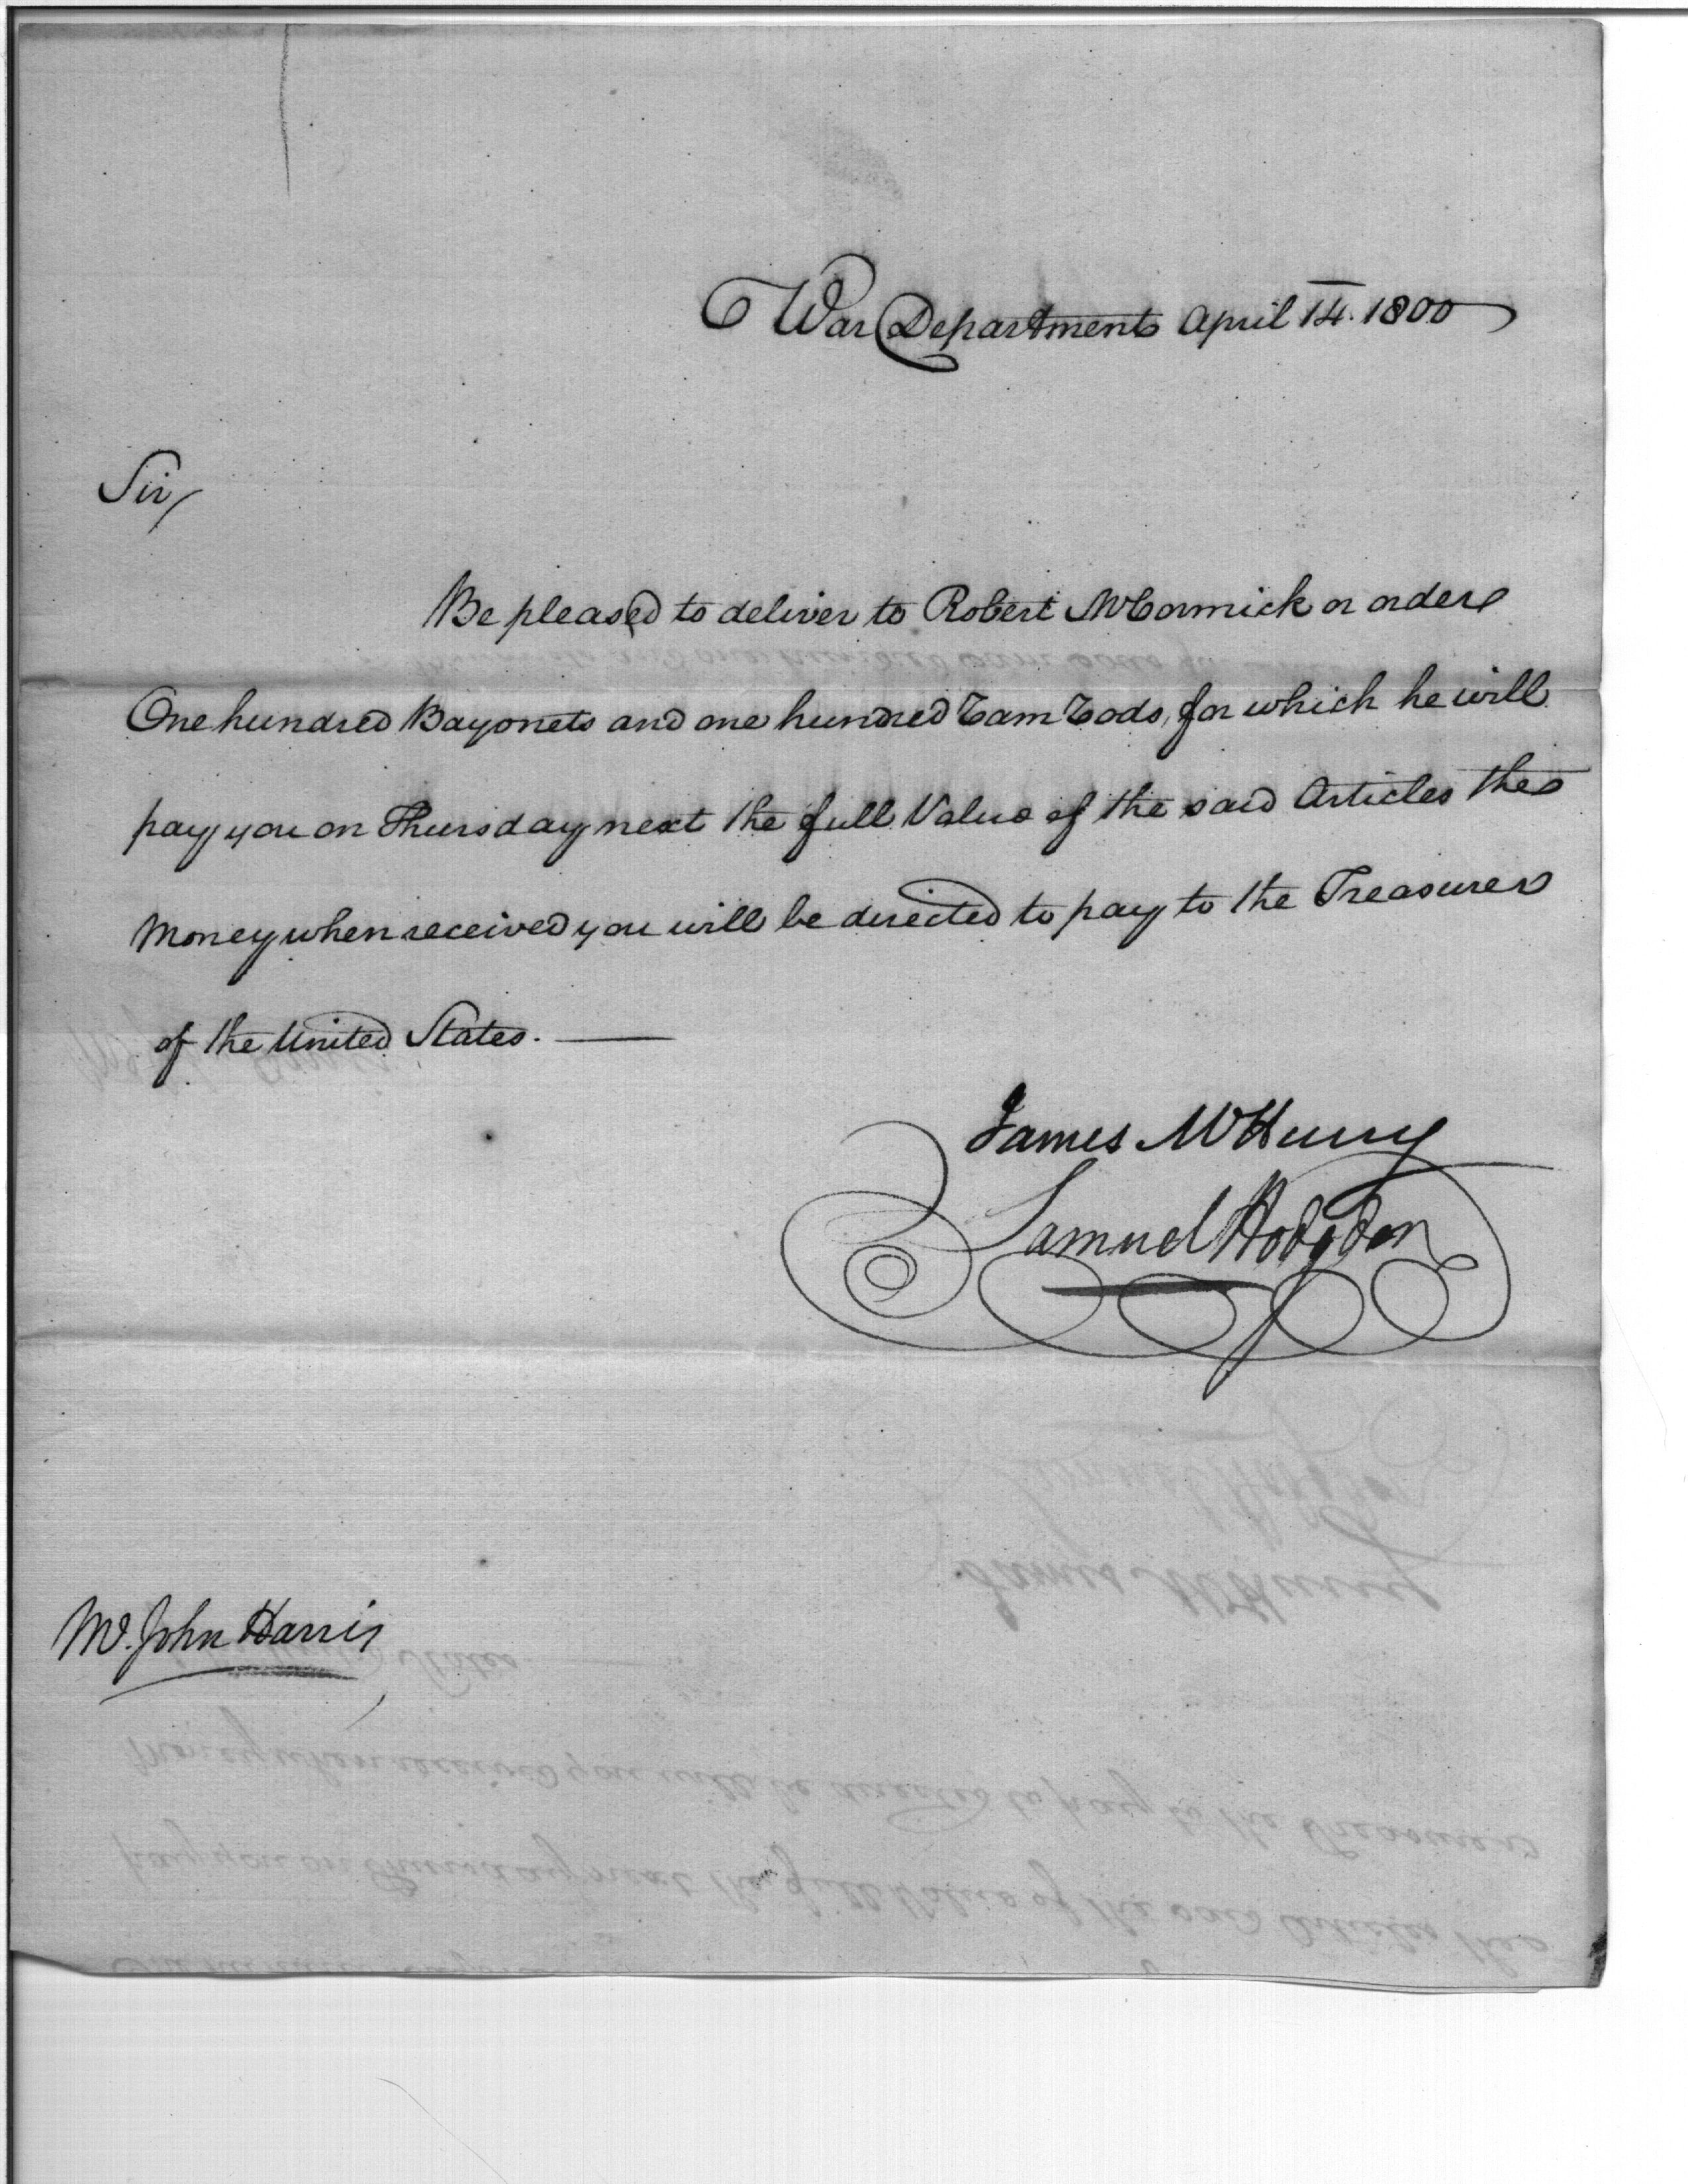 War Department April 14. 1800
Sir,
Be pleased to deliver to Robert McCormick or order
One hundred Bayonets and one hundred Ram Rods, for which he will
pay you on Thursday next the full Value of the said Articles the
Money when received you will be directed to pay to the Treasurer
of the United States.
James McHenry
Samuel Hodgdon
Mr. John Harris